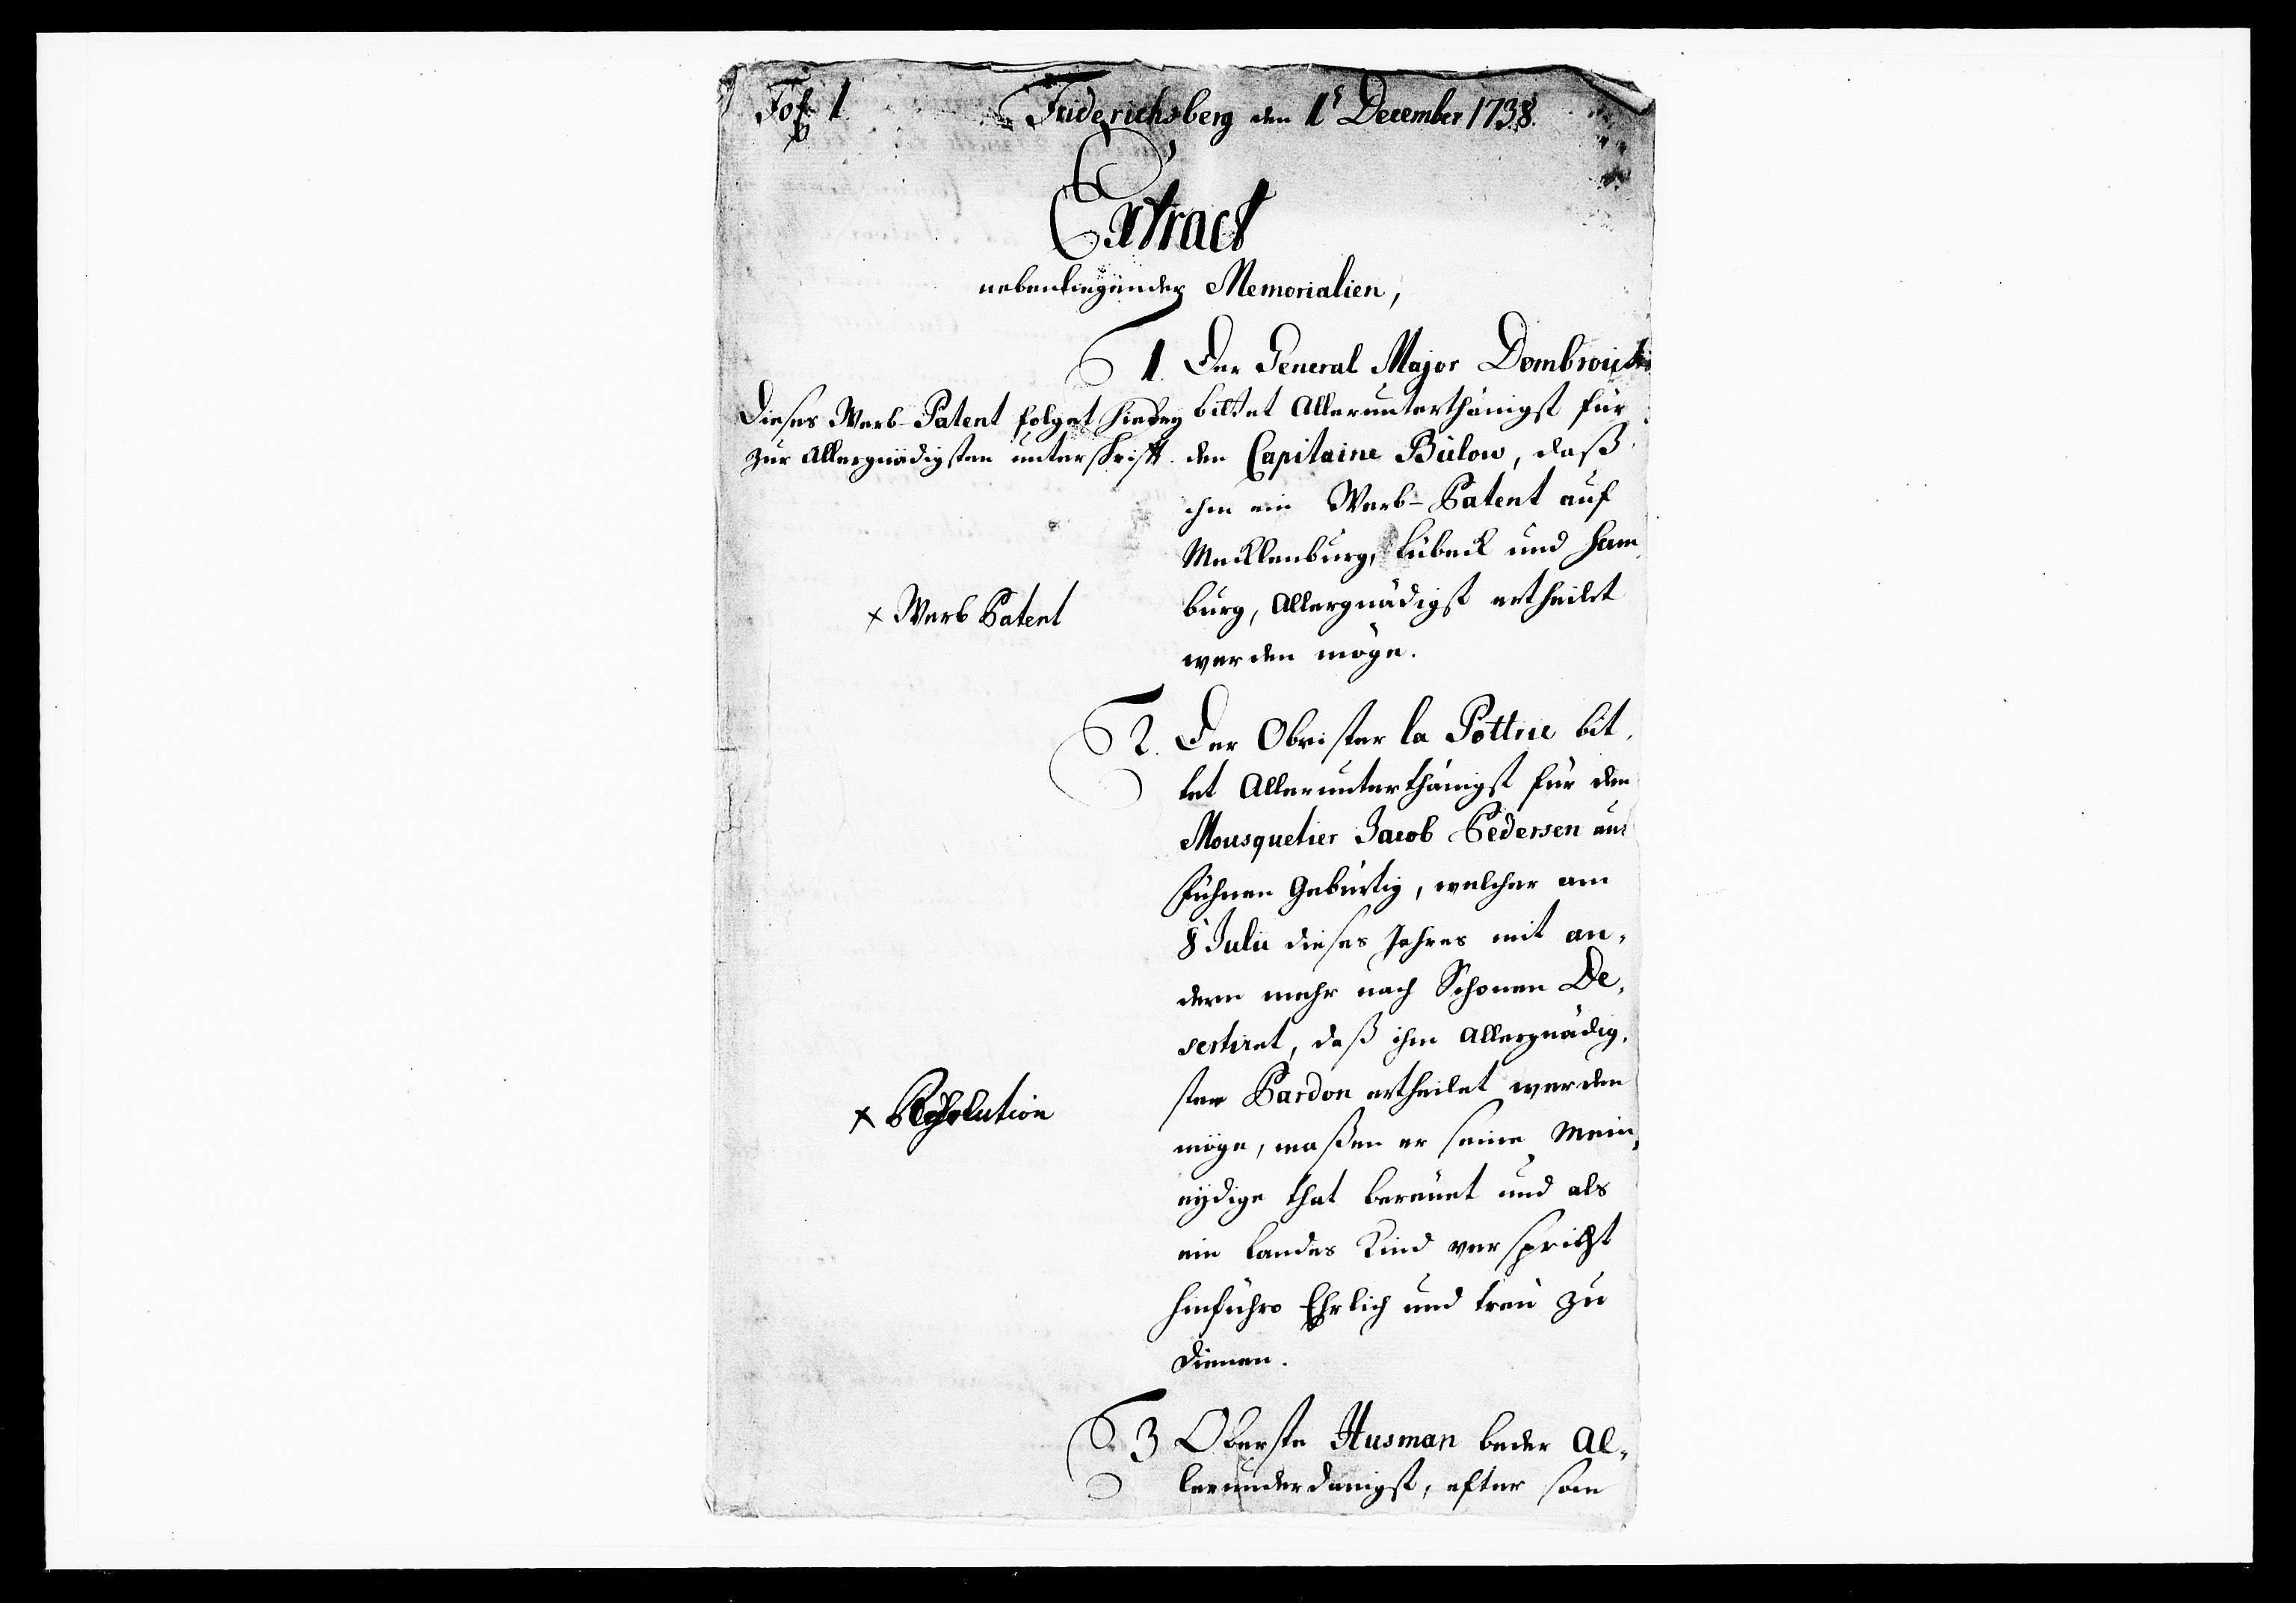 Fol 1
Friderichsberg den 1t December 1738.
Extract
nebenliegender Memorialien,
1. Der General Major Dombrouski
bittet Allerunterthänigst für
den Capitaine Bülow, daß
ihm ein Werb-Patent auf
Mecklenburg, Lübeck und Ham
burg, Allergnädigst ertheilet
werden möge.
Dieses Werb-Patent folget hiebey
zur Allergnädigsten unterschrifft.
x Werb Patent
2. Der Obrister la Pottrie bit,
tet Allerunterthänigst für den
Mousquetier Jacob Pedersen aus
Fühnen Gebürtig, welcher am
8 Julii dieses Jahres mit an,
dern mehr nach Schonen De,
sertiret, daß ihm Allergnädig,
ster Pardon ertheilet werden
möge, maßen er seine Mein,
eydige that bereuet und als
ein Landes Kind verspricht
hinführo Ehrlich und treu zu
dienen.
x Resolution
3 Oberste Husman beder Al,
lerunderdanigst, efter som